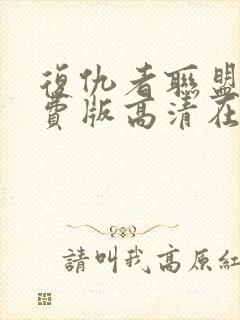 復仇者聯盟
費版高清在
請叫我高原紅